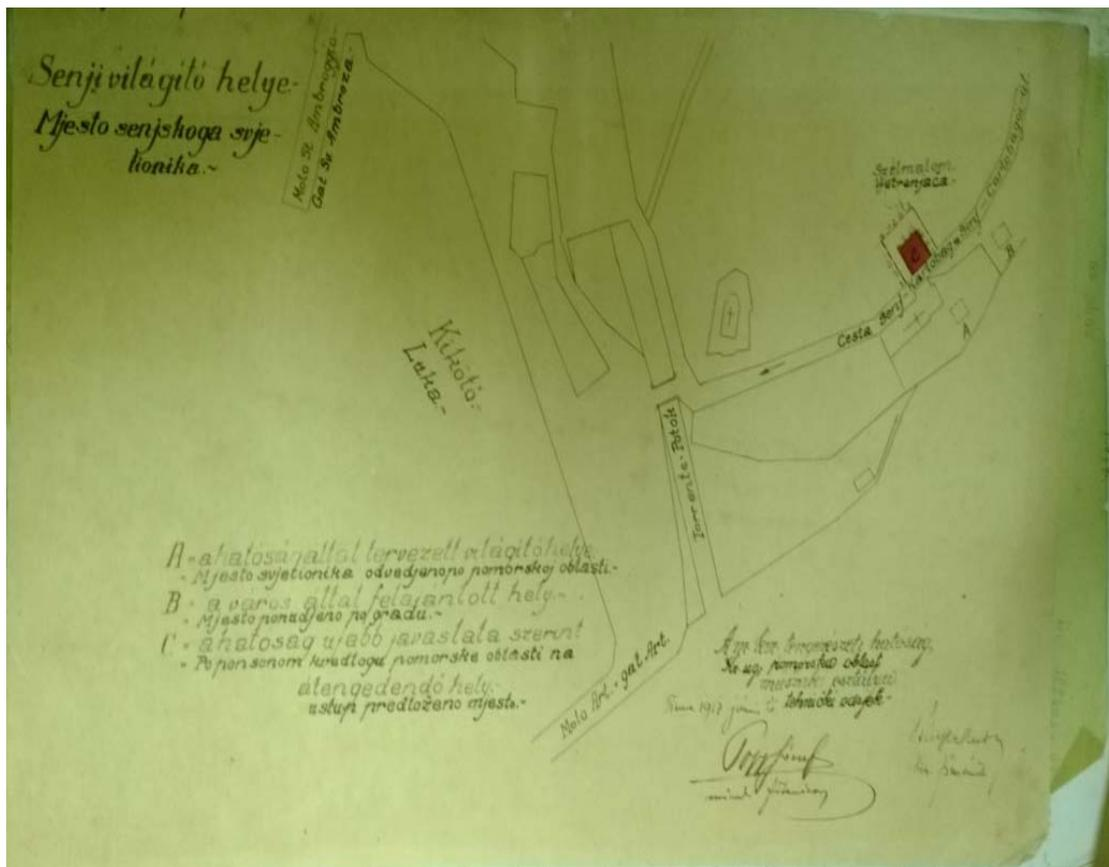 Senji világító helye.-
Mjesto senjskoga svje-
tionika.-
Molo St. Ambrogio.-
Gat Sv. Ambroza.-
Szélmalom.
Vetrenjaca.-
C
B
A
Cesta Senj-Karlobag
Kikötö.-
Luka.-
Torrente-Potok
Molo Art.-gat Art.
A = a hatóság által tervezett világító helye.
- Mjesto svjetionika odredjeno po pomorskoj oblasti.-
B = a város által felajánlott hely.-
- Mjesto ponudjeno po gradu.-
C = a hatóság ujabb javaslata szerint
- Po ponovnom predlogu pomorske oblasti na
átengedendő hely.-
ustup predloženo mjesto.-
A m. kir. tengerészeti hatóság,
Kr. ug. pomorska oblast
müszaki osztálya
tehnički odsjek.-
1917